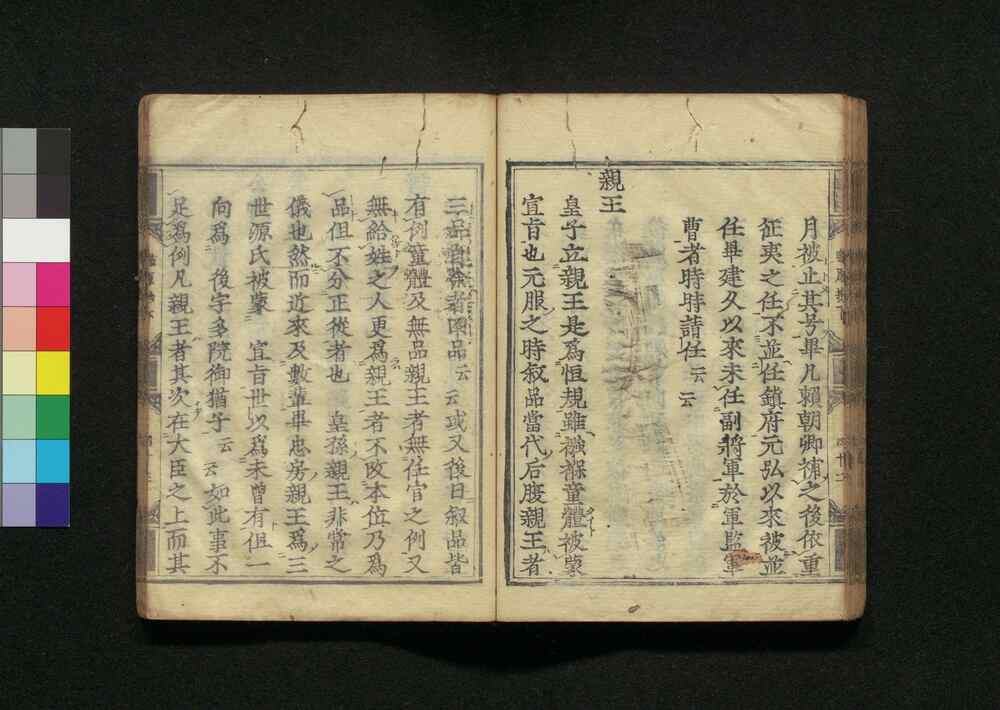 月被止其号畢凡頼朝卿補之後依重
征夷之任不並任鎮府元弘以來被並
任畢建久以來未任副將軍於軍監軍
曹者時時請任云云
親王
皇子立親王是爲恒規雖襁褓童體被蒙
宣旨也元服之時叙品當代后腹親王者
三品自餘者四品云云或又後日叙品皆
有例童體及無品親王者無任官之例又
無給姓之人更爲親王者不改本位乃爲
品但不分正從者也 皇孫親王非常之
儀也然而近來及數輩畢忠房親王爲三
世源氏被蒙 宣旨世以爲未曾有但一
向爲 後宇多院御猶子云云如此事不
足爲例凡親王者其次在大臣之上而其